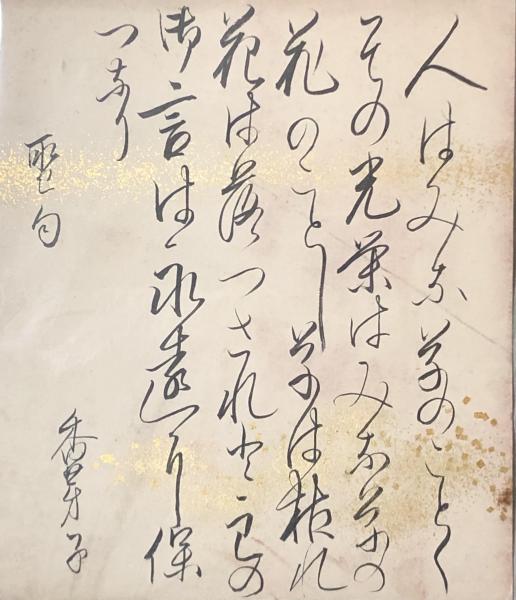 人はみな草のことく
その光栄はみな草の
花のことし草は枯れ
花は落つされと主の
御言は永遠に保
つなり
聖句
香芽子